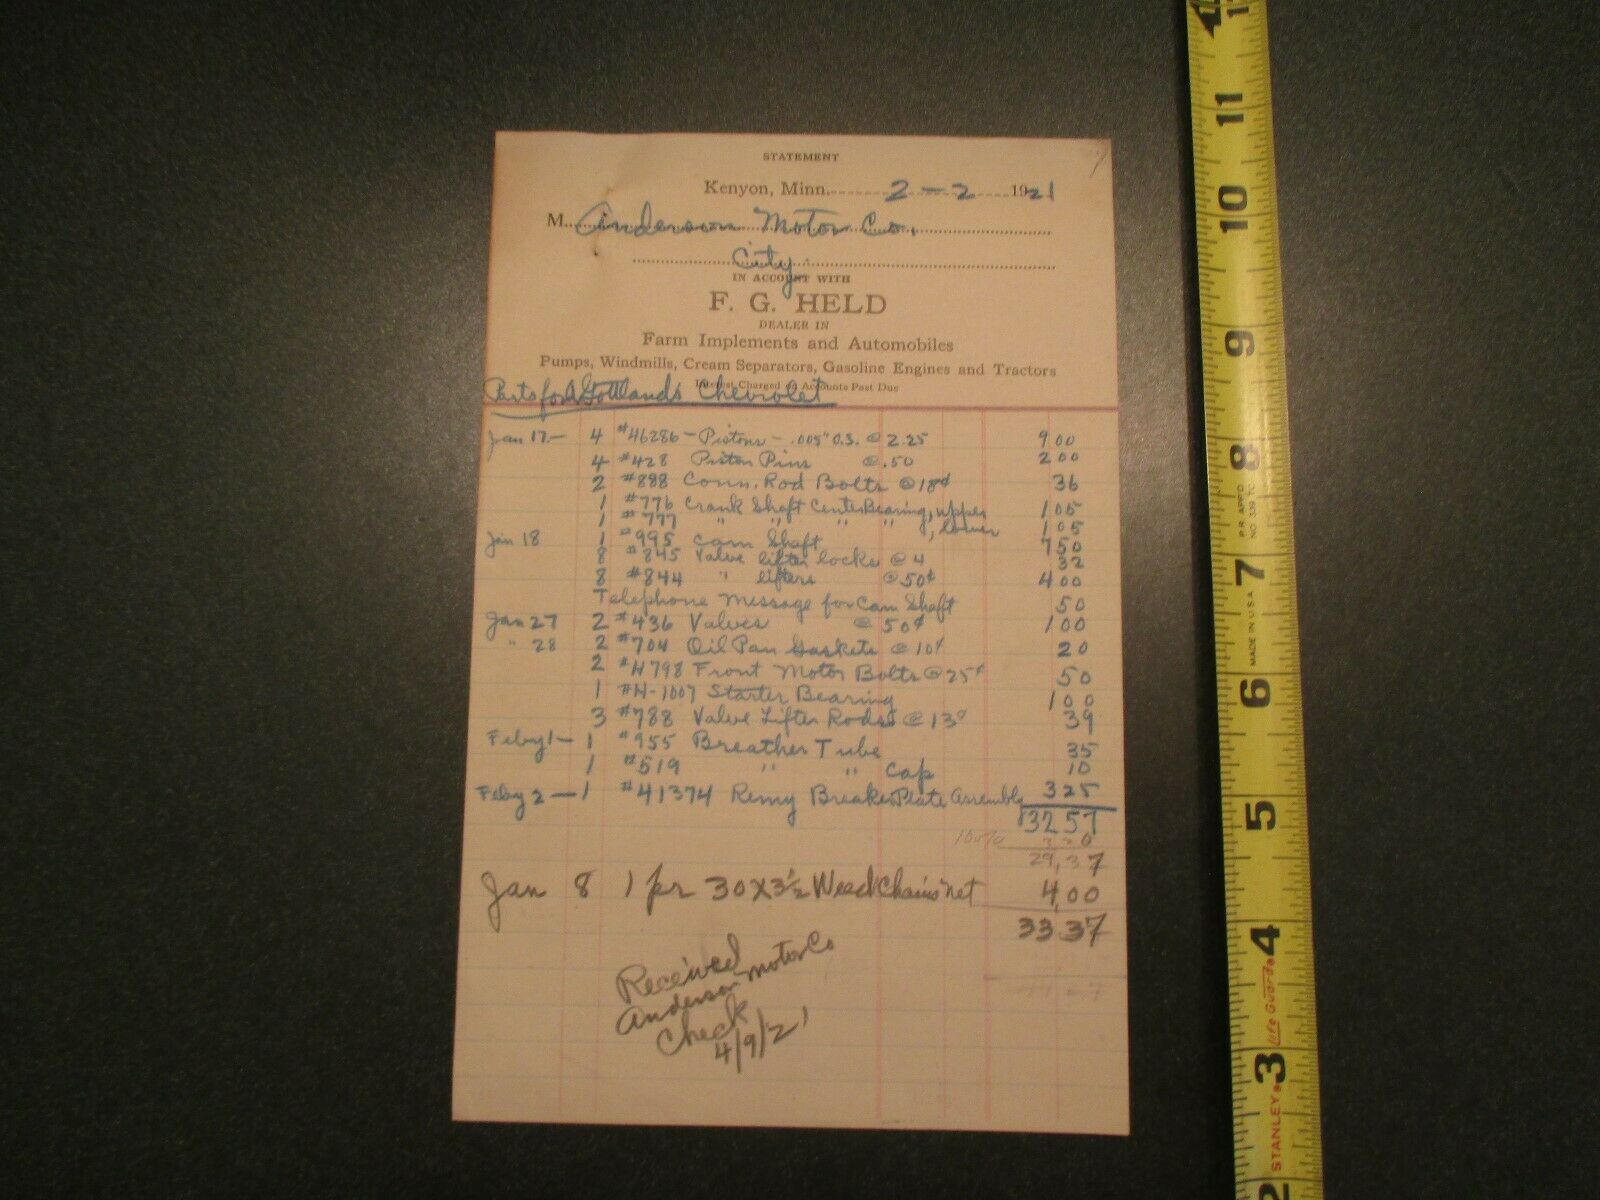 STATEMENT
Kenyon, Minn. 2-2 1921
M. Anderson Motor Co.
City.
IN ACCOUNT WITH
F. G. HELD
DEALER IN
Farm Implements and Automobiles
Pumps, Windmills, Cream Separators, Gasoline Engines and Tractors
Interest Charged on Accounts Past Due
Parts for Gottland's Chevrolet
Jan 17- 4 #46286 - Pistons - .005" O.S. @ 2.25 9 00
4 #428 Piston Pins @ .50 2 00
2 #888 Conn. Rod Bolts @ 18¢ 36
1 #776 Crank Shaft Center Bearing, upper 1 05
1 #777 " " " " , lower 1 05
Jan 18 1 #995 Cam Shaft 7 50
8 #845 Valve lifter locks @ 4 32
8 #844 " lifters @ 50¢ 4 00
Telephone message for Cam Shaft 50
Jan 27 2 #436 Valves @ 50¢ 1 00
" 28 2 #704 Oil Pan Gaskets @ 10¢ 20
2 #H798 Front Motor Bolts @ 25¢ 50
1 #H-1007 Starter Bearing 1 00
3 #788 Valve Lifter Rods @ 13¢ 39
Feby 1 - 1 #955 Breather Tube 35
1 #519 " " Cap 10
Feby 2 - 1 #41374 Remy Breaker Plate Assembly 3 25
32 57
10% 3 20
29,37
Jan 8 1 pr 30X3½ Weed Chains net 4,00
33 37
Received
Anderson Motor Co
Check
4/9/21
11
10
9
8
7
6
5
4
3
2
P.R. APP'D
MADE IN U.S.A.
Life Guard
STANLEY